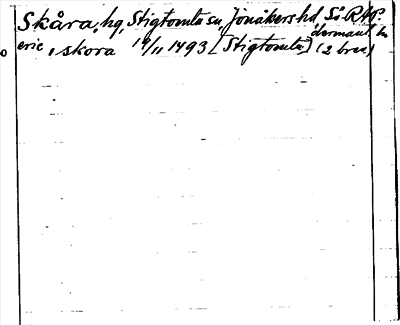 Skåra, hg, Stigtomta sn, Jönåkers hd, Sö. RAp.
eric, skora 19/11 1493 [Stigtomta] (2 brev)